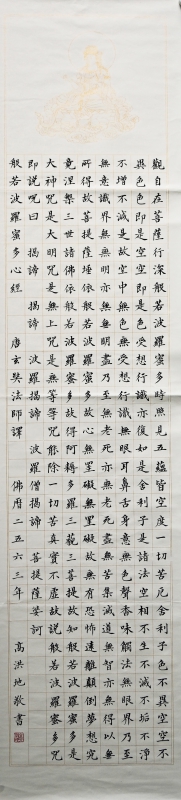 觀自在菩薩行深般若波羅蜜多時照見五蘊皆空度一切苦厄舍利子色不異空空不
異色色即是空空即是色受想行識亦復如是舍利子是諸法空相不生不滅不垢不淨
不增不減是故空中無色無受想行識無眼耳鼻舌身意無色聲香味觸法無眼界乃至
無意識界無無明亦無無明盡乃至無老死亦無老死盡無苦集滅道無智亦無得以無
所得故菩提薩埵依般若波羅蜜多故心無罣礙無罣礙故無有恐怖遠離顛倒夢想究
竟涅槃三世諸佛依般若波羅蜜多故得阿耨多羅三藐三菩提故知般若波羅蜜多是
大神咒是大明咒是無上咒是無等等咒能除一切苦真實不虛故說般若波羅蜜多咒
即說咒曰 揭諦 揭諦 波羅揭諦 波羅僧揭諦 菩提薩婆訶
般若波羅蜜多心經 唐玄奘法師譯 佛曆二五六三年 高洪地敬書